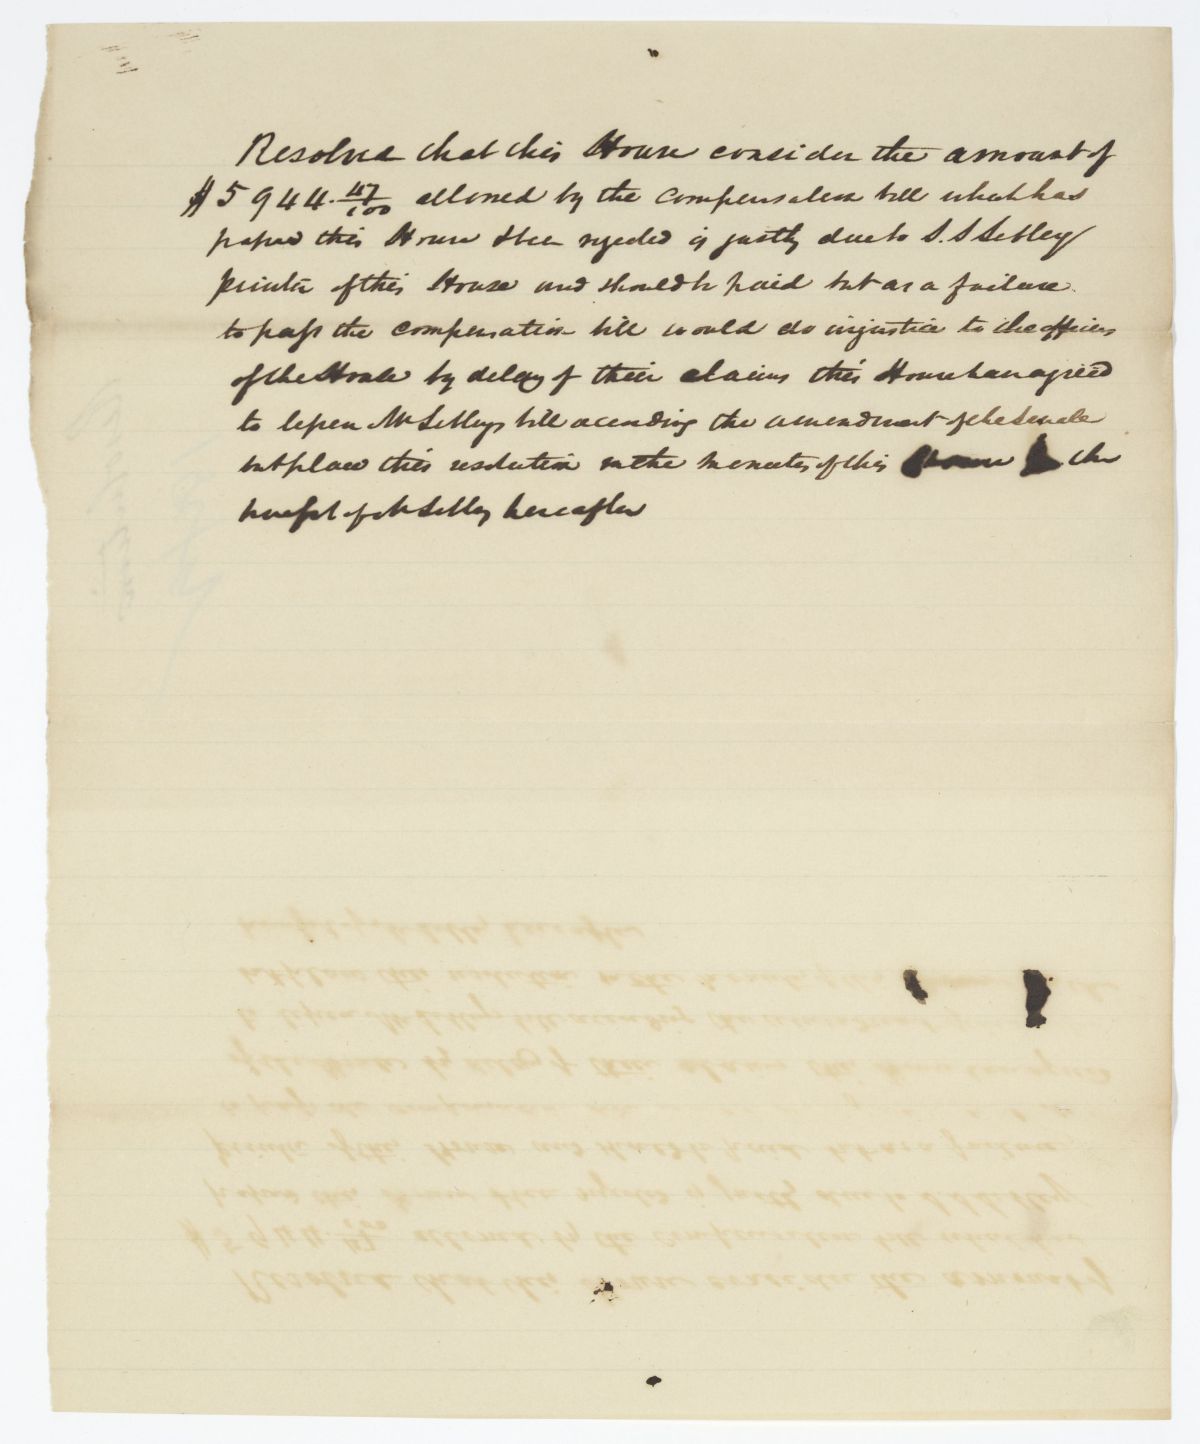 Resolved that this House consider the amount of
$5944.47/100 allowed by the compensation bill which has
passed this House & been rejected is justly due to S. S Sibley
printer of this House and should be paid but as a failure
to pass the compensation bill would do injustice to the officers
of the House by delay of their claims this House have agreed
to Mr Sibleys bill the amendment of the Senate
but place this resolution on the minutes of this House the
benefit of Mr Sibley hereafter